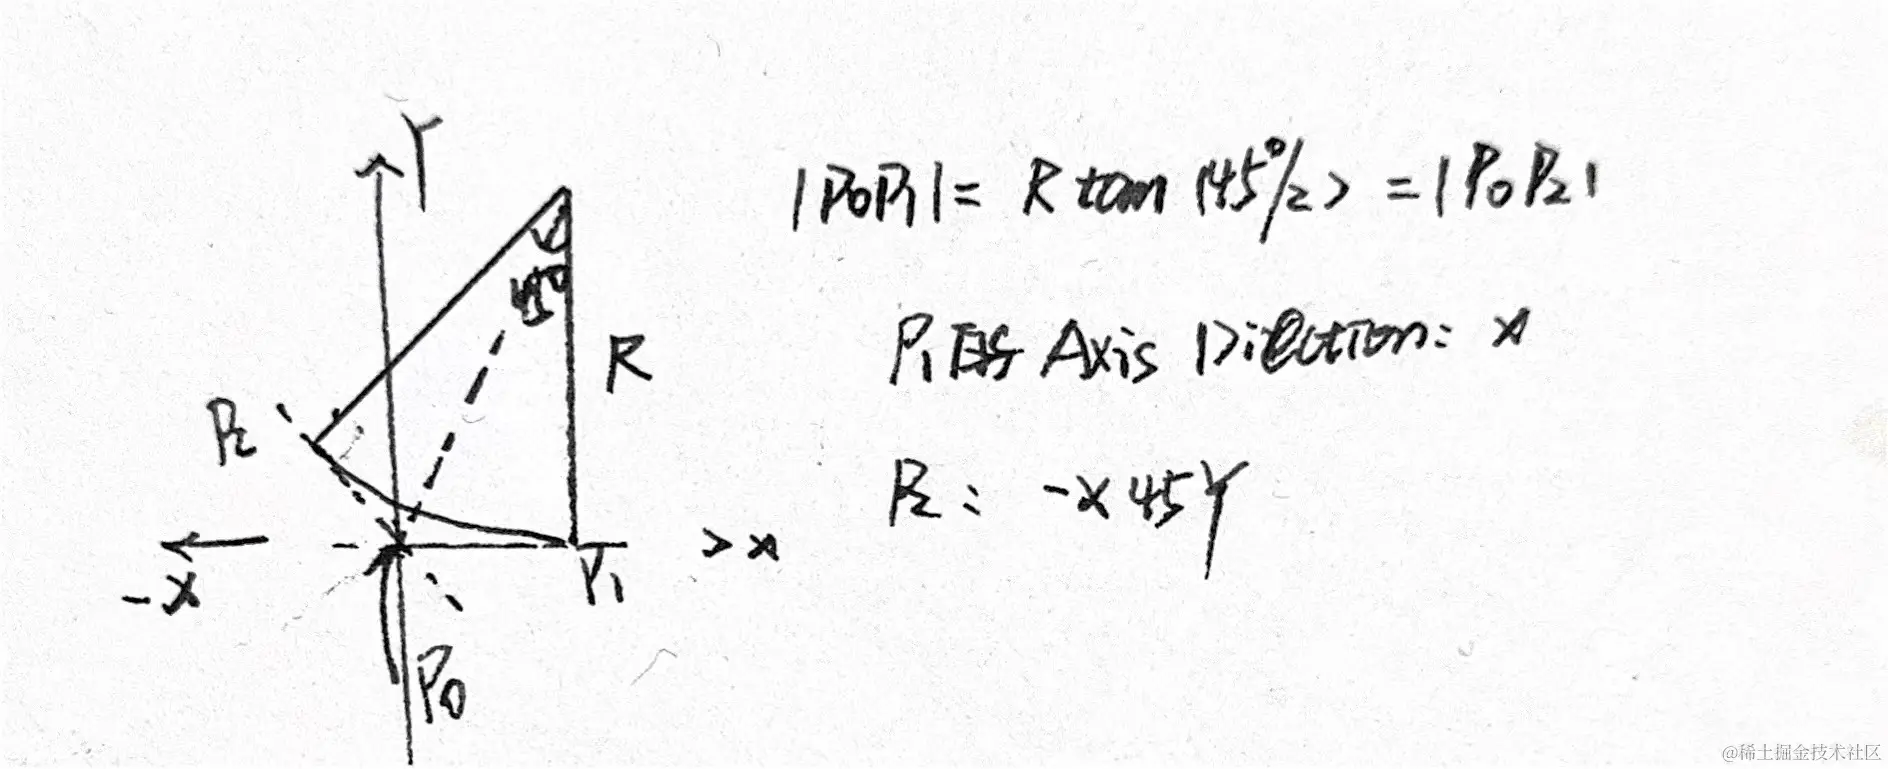 Y
|P₀P₁| = R tan (45°/2) = |P₀P₂|
45°
R
P₁ 的 Axis Direction: x
P₂
P₂: -x 45 Y
-x
> x
P₁
P₀
@稀土掘金技术社区